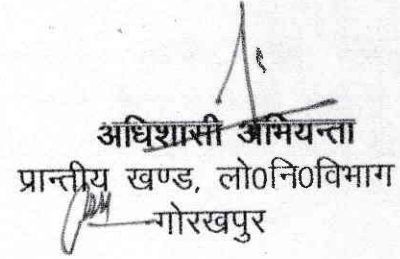 अधिशासी अभियन्ता
प्रान्तीय खण्ड, लो0नि0विभाग
गोरखपुर